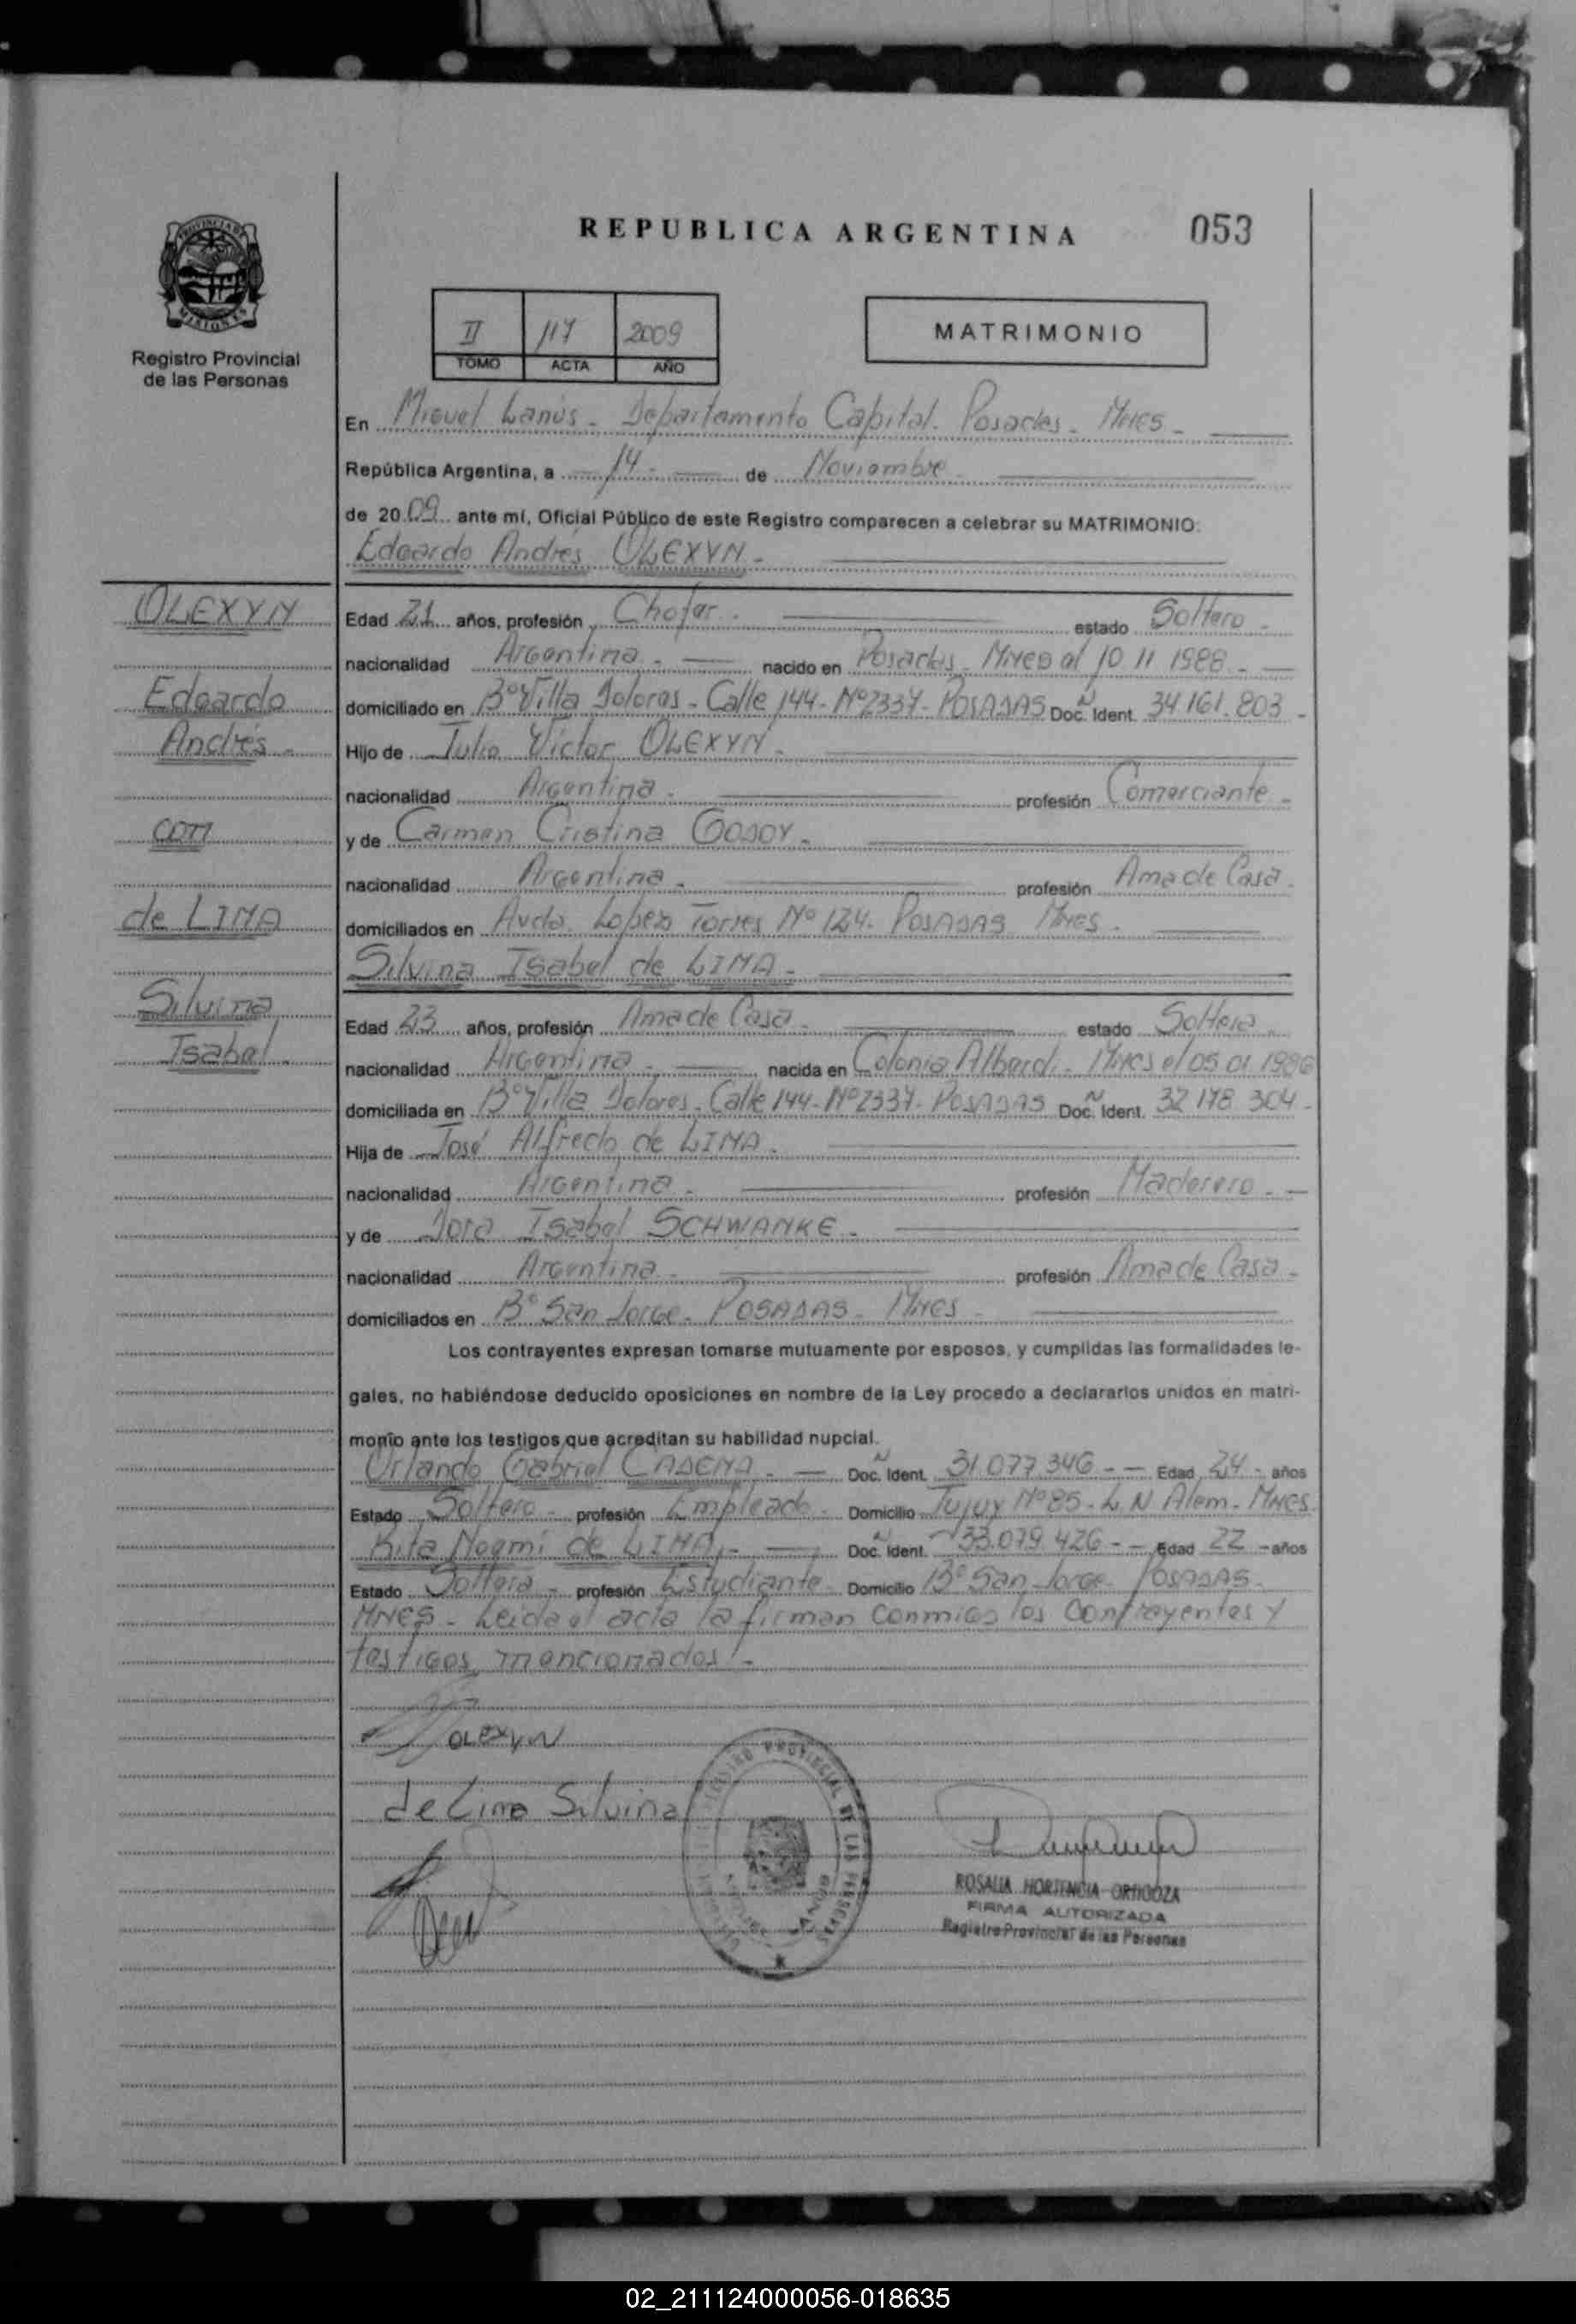 REPUBLICA ARGENTINA 053
PROVINCIA DE
MISIONES
Registro Provincial
de las Personas
II 117 2009
TOMO ACTA AÑO
MATRIMONIO
En Miguel Lanús - Departamento Capital. Posadas - Mnes -
República Argentina, a 14 - de Noviembre
de 2009 ante mí, Oficial Público de este Registro comparecen a celebrar su MATRIMONIO:
Edgardo Andrés OLEXYN -
OLEXYN
Edgardo
Andrés -
con
de LIMA
Silvina
Isabel
Edad 21 años, profesión Chofer. estado Soltero -
nacionalidad Argentina - nacido en Posadas - Mnes el 10 11 1988 -
domiciliado en B° Villa Dolores - Calle 144 - N° 2337 - POSADAS Doc. Ident. 34 161.803 -
Hijo de Julio Victor OLEXYN -
nacionalidad Argentina - profesión Comerciante -
y de Carmen Cristina GODOY -
nacionalidad Argentina - profesión Ama de Casa.
domiciliados en Avda. Lopez Torres N° 124. POSADAS Mnes -
Silvina Isabel de LIMA -
Edad 23 años, profesión Ama de Casa - estado Soltera -
nacionalidad Argentina - nacida en Colonia Alberdi - Mnes el 05 01 1986
domiciliada en B° Villa Dolores - Calle 144 - N° 2337 - POSADAS Doc. Ident. 32 178 304 -
Hija de José Alfredo de LIMA -
nacionalidad Argentina - profesión Maderero -
y de Dora Isabel SCHWANKE -
nacionalidad Argentina - profesión Ama de Casa -
domiciliados en B° San Jorge - POSADAS - Mnes -
Los contrayentes expresan tomarse mutuamente por esposos, y cumplidas las formalidades le-
gales, no habiéndose deducido oposiciones en nombre de la Ley procedo a declararlos unidos en matri-
monio ante los testigos que acreditan su habilidad nupcial.
Orlando Gabriel CADENA - Doc. Ident. 31.077.346 - - Edad 24 - años
Estado Soltero - profesión Empleado - Domicilio Jujuy N° 85 - L. N Alem - Mnes.
Rita Noemí de LIMA - Doc. Ident. 33.079.426 - - Edad 22 - años
Estado Soltera - profesión Estudiante - Domicilio B° San Jorge - POSADAS -
MNES - Leida el acta la firman conmigo los contrayentes y
testigos mencionados! -
OLEXYN
de Lima Silvina
REGISTRO PROVINCIAL DE LAS PERSONAS
ROSALIA HORTENCIA ORTIGOZA
FIRMA AUTORIZADA
Registro Provincial de las Personas
02_211124000056-018635